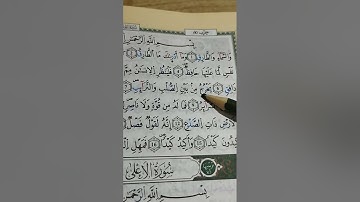 بِسْمِ اللَّهِ الرَّحْمَٰنِ
وَالسَّمَاءِ وَالطَّارِقِ ١ وَمَا أَدْرَاكَ مَا الطَّارِقُ ٢
نَفْسٍ لَمَّا عَلَيْهَا حَافِظٌ ٤ فَلْيَنْظُرِ الْإِنْسَانُ مِمَّ
يَخْرُجُ مِنْ بَيْنِ الصُّلْبِ وَالتَّرَائِبِ
فَمَا لَهُ مِنْ قُوَّةٍ وَلَا نَاصِرٍ
ذَاتِ الصَّدْعِ ١٢ إِنَّهُ لَقَوْلٌ فَصْلٌ
كَيْدًا ١٥ وَأَكِيدُ كَيْدًا ١٦ فَمَهِّلِ
سُورَةُ الْأَعْلَىٰ
بِسْمِ اللَّهِ الرَّحْمَٰنِ